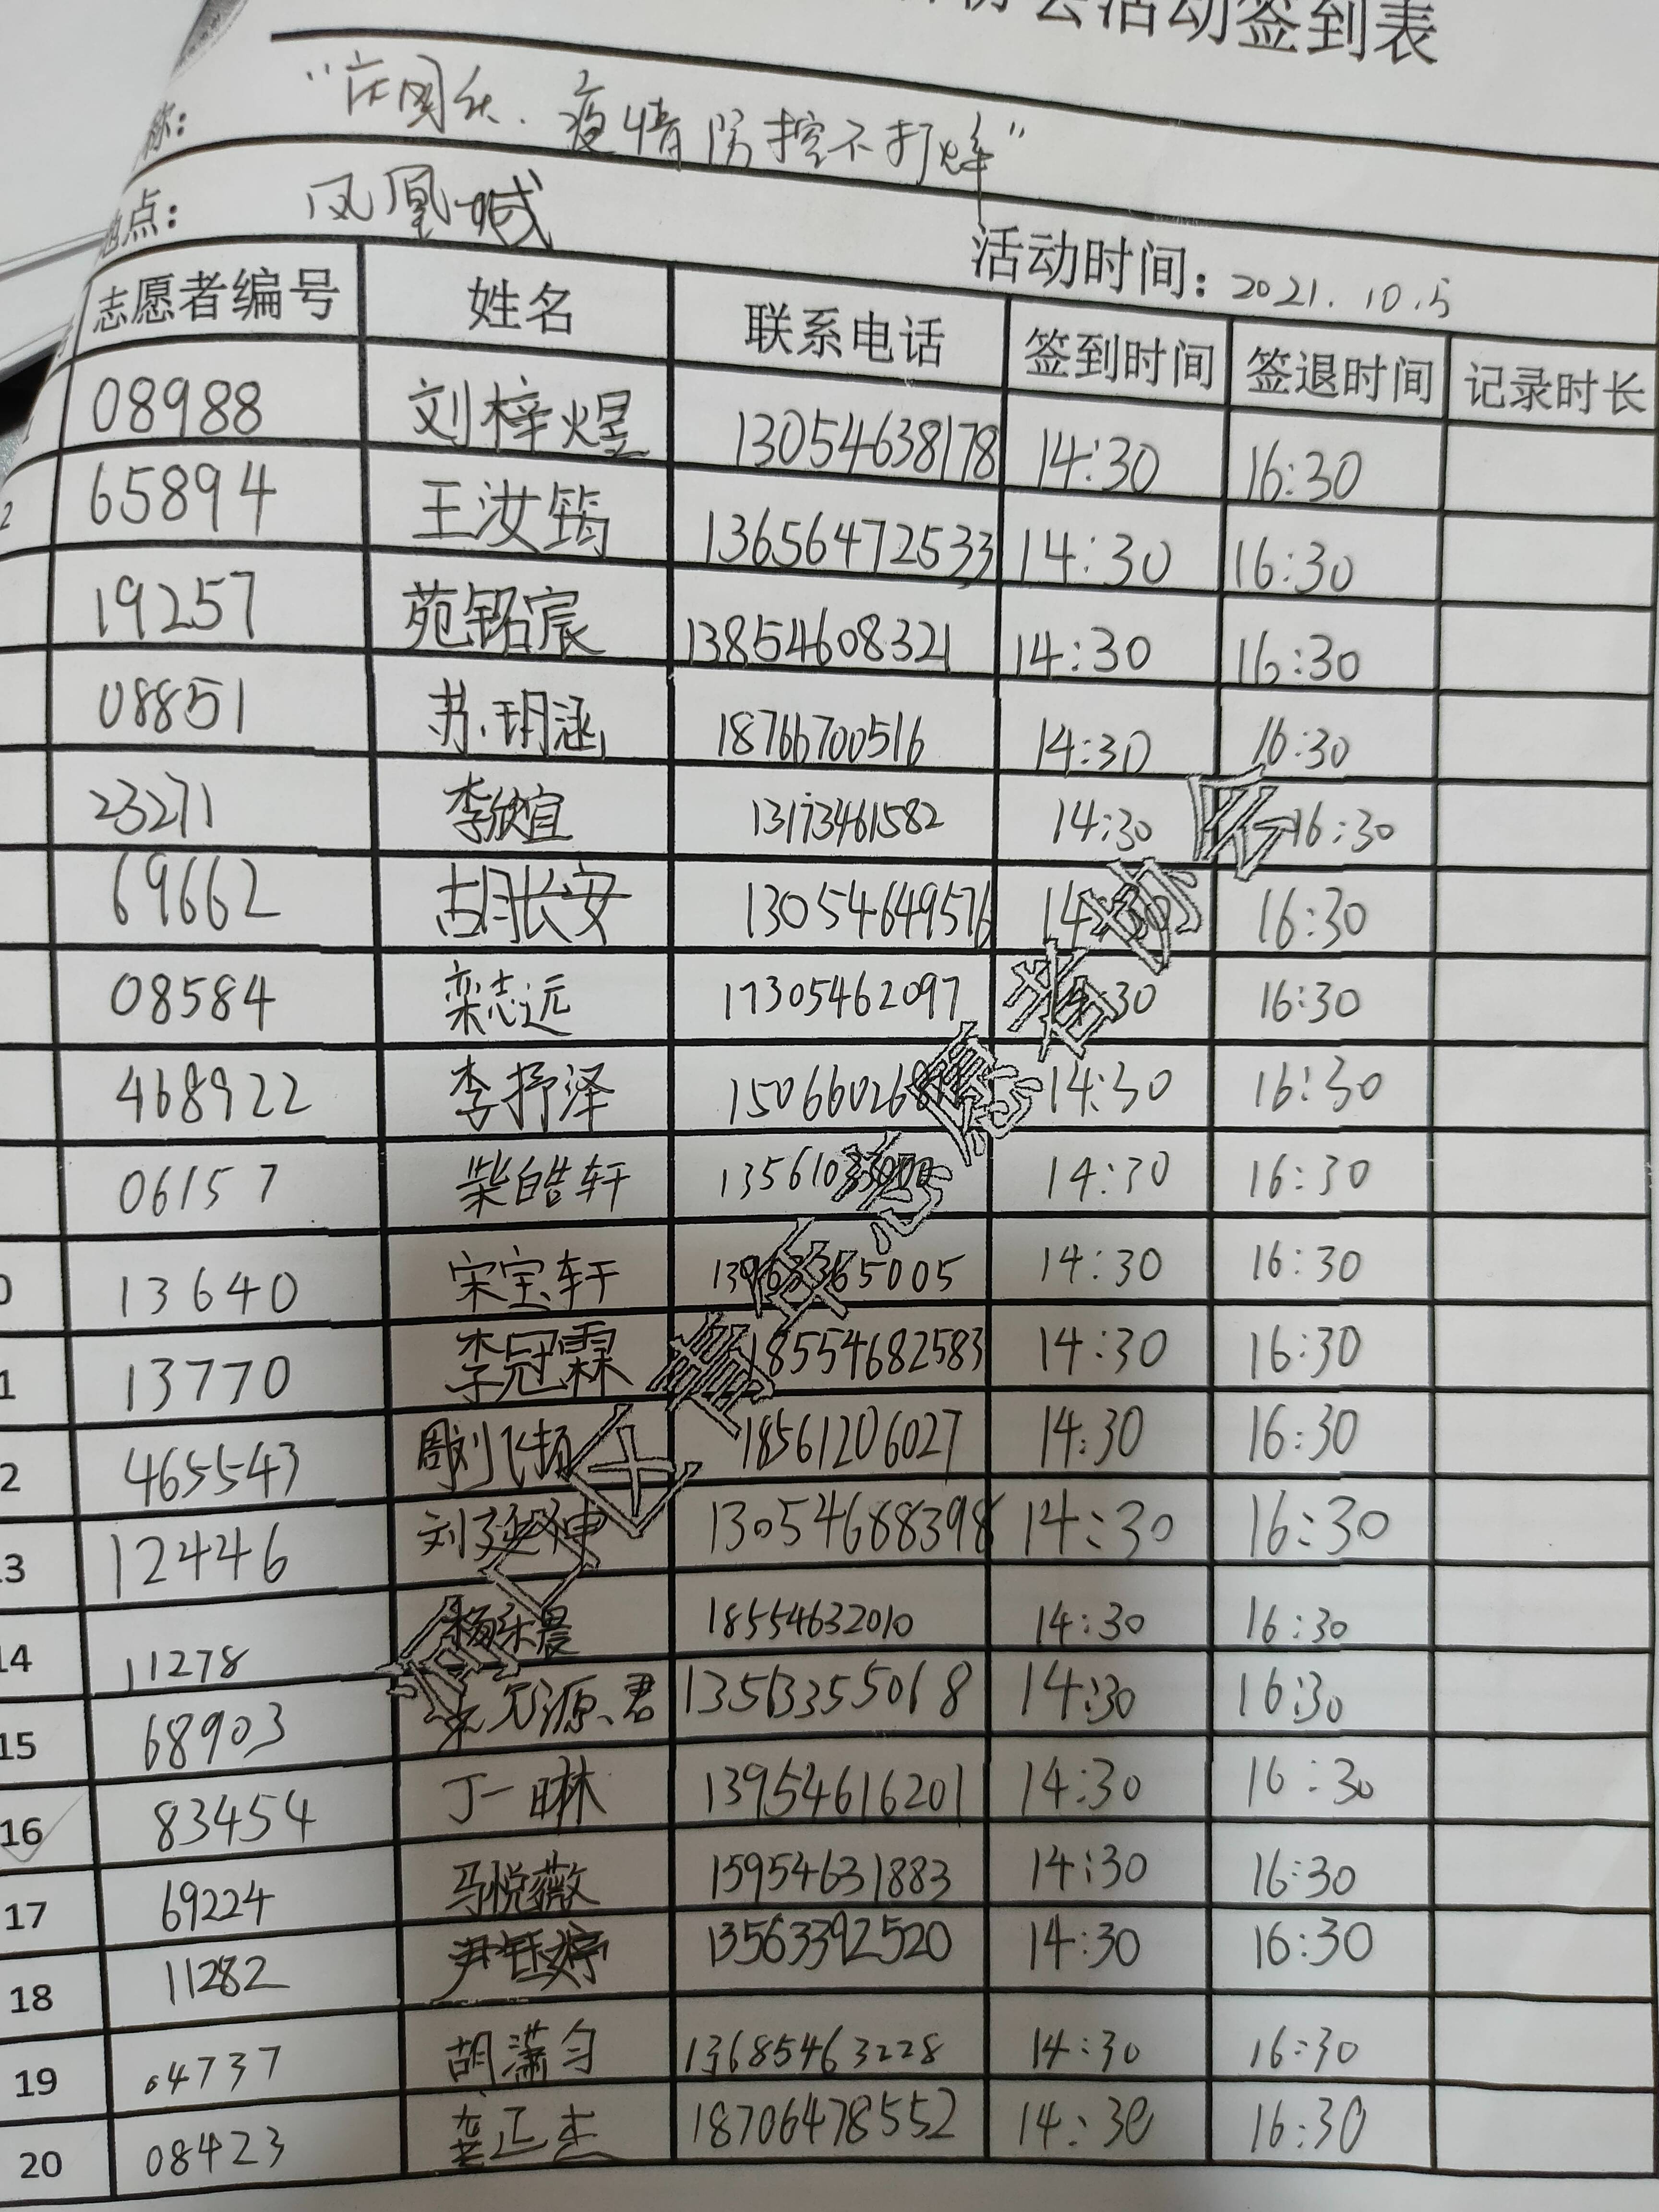 会活动签到表
称： “庆国庆、疫情防控不打烊”
地点： 凤凰城
活动时间：2021.10.5
志愿者编号 姓名 联系电话 签到时间 签退时间 记录时长
1 08988 刘梓煜 13054638178 14:30 16:30
2 65894 王汝筠 13656472533 14:30 16:30
19257 苑铭宸 13854608321 14:30 16:30
08851 苏玥涵 18766700516 14:30 16:30
23271 李欣宜 13173461582 14:30 16:30
69662 胡长安 13054649576 14:30 16:30
08584 栾志远 17305462097 14:30 16:30
468922 李抒泽 14:30 16:30
06157 柴皓轩 14:30 16:30
0 13640 宋宝轩 14:30 16:30
1 13770 李冠霖 18554682583 14:30 16:30
2 465543 18561206027 14:30 16:30
3 12446 13054688398 14:30 16:30
14 11278 18554632010 14:30 16:30
15 68903 14:30 16:30
16 83454 丁一琳 13954616201 14:30 16:30
17 69224 马悦薇 15954631883 14:30 16:30
18 11282 尹钰婷 13563392520 14:30 16:30
19 04737 胡潇匀 13685463228 14:30 16:30
20 08423 龚正杰 18706478552 14:30 16:30
志愿者协会